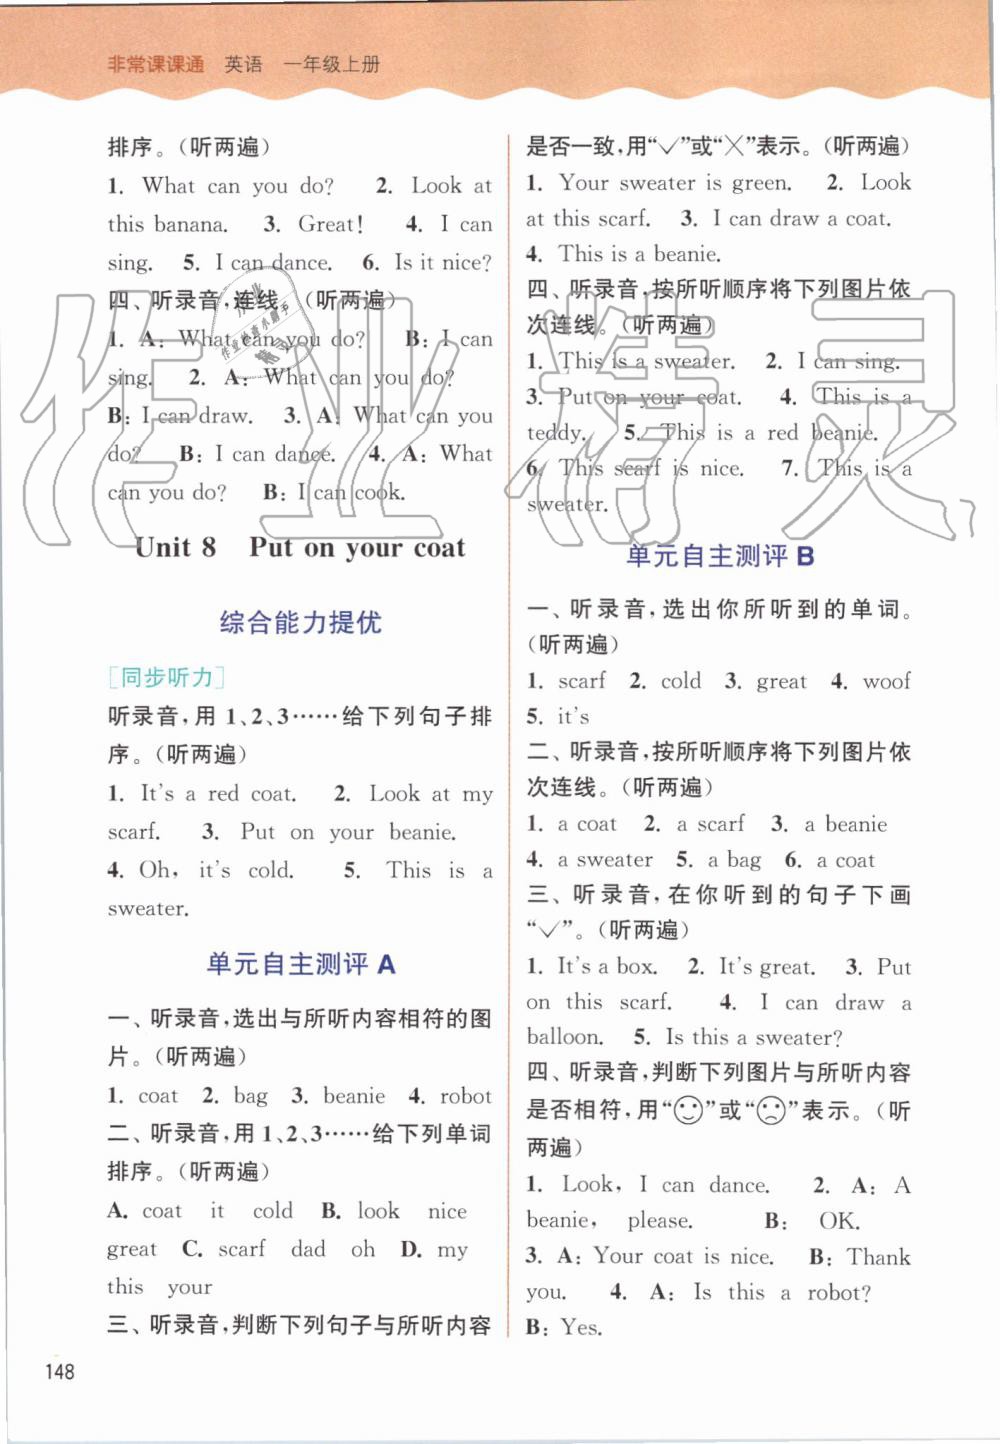 非常课课通 英语 一年级上册
排序。(听两遍)
1. What can you do? 2. Look at
this banana. 3. Great! 4. I can
sing. 5. I can dance. 6. Is it nice?
四、听录音,连线。(听两遍)
1. A: What can you do? B: I can
sing. 2. A: What can you do?
B: I can draw. 3. A: What can you
do? B: I can dance. 4. A: What
can you do? B: I can cook.
Unit 8 Put on your coat
综合能力提优
[同步听力]
听录音,用 1、2、3……给下列句子排
序。(听两遍)
1. It's a red coat. 2. Look at my
scarf. 3. Put on your beanie.
4. Oh, it's cold. 5. This is a
sweater.
单元自主测评 A
一、听录音,选出与所听内容相符的图
片。(听两遍)
1. coat 2. bag 3. beanie 4. robot
二、听录音,用 1、2、3……给下列单词
排序。(听两遍)
A. coat it cold B. look nice
great C. scarf dad oh D. my
this your
三、听录音,判断下列句子与所听内容
是否一致,用“✓”或“✗”表示。(听两遍)
1. Your sweater is green. 2. Look
at this scarf. 3. I can draw a coat.
4. This is a beanie.
四、听录音,按所听顺序将下列图片依
次连线。(听两遍)
1. This is a sweater. 2. I can sing.
3. Put on your coat. 4. This is a
teddy. 5. This is a red beanie.
6. This scarf is nice. 7. This is a
sweater.
单元自主测评 B
一、听录音,选出你所听到的单词。
(听两遍)
1. scarf 2. cold 3. great 4. woof
5. it's
二、听录音,按所听顺序将下列图片依
次连线。(听两遍)
1. a coat 2. a scarf 3. a beanie
4. a sweater 5. a bag 6. a coat
三、听录音,在你听到的句子下画
“✓”。(听两遍)
1. It's a box. 2. It's great. 3. Put
on this scarf. 4. I can draw a
balloon. 5. Is this a sweater?
四、听录音,判断下列图片与所听内容
是否相符,用“☺”或“☹”表示。(听
两遍)
1. Look, I can dance. 2. A: A
beanie, please. B: OK.
3. A: Your coat is nice. B: Thank
you. 4. A: Is this a robot?
B: Yes.
148
作业精灵